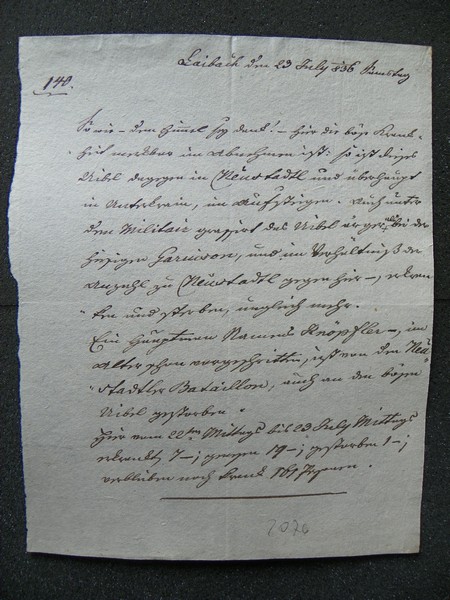 Laibach den 23 July 836 Samstag
140.
So wie – dem Himmel sey dank! – hier die böse Krank-
heit merkbar im Abnehmen ist: so ist dieses
Uibel dagegen in Neustadtl und überhaupt
in Unterkrain, im Aufsteigen. Auch unter
dem Militair grassirt das Uibel ärger als bei der
hiesigen Garnison, und im Verhältniß der
Anzahl zu Neustadtl gegen hier –, erkran-
ken und sterben, ungleich mehr.
Ein Hauptman Namens Knöpfler –, im
Alter schon vorgeschritten, ist von den Neu-
stadtler Bataillon, auch an den bösen
Uibel gestorben.
Hier vom 22ten Mittags bis 23 July Mittags
erkrankt 7 –; genesen 19 –; gestorben 1 –;
verblieben noch krank 161 Personen.
2076